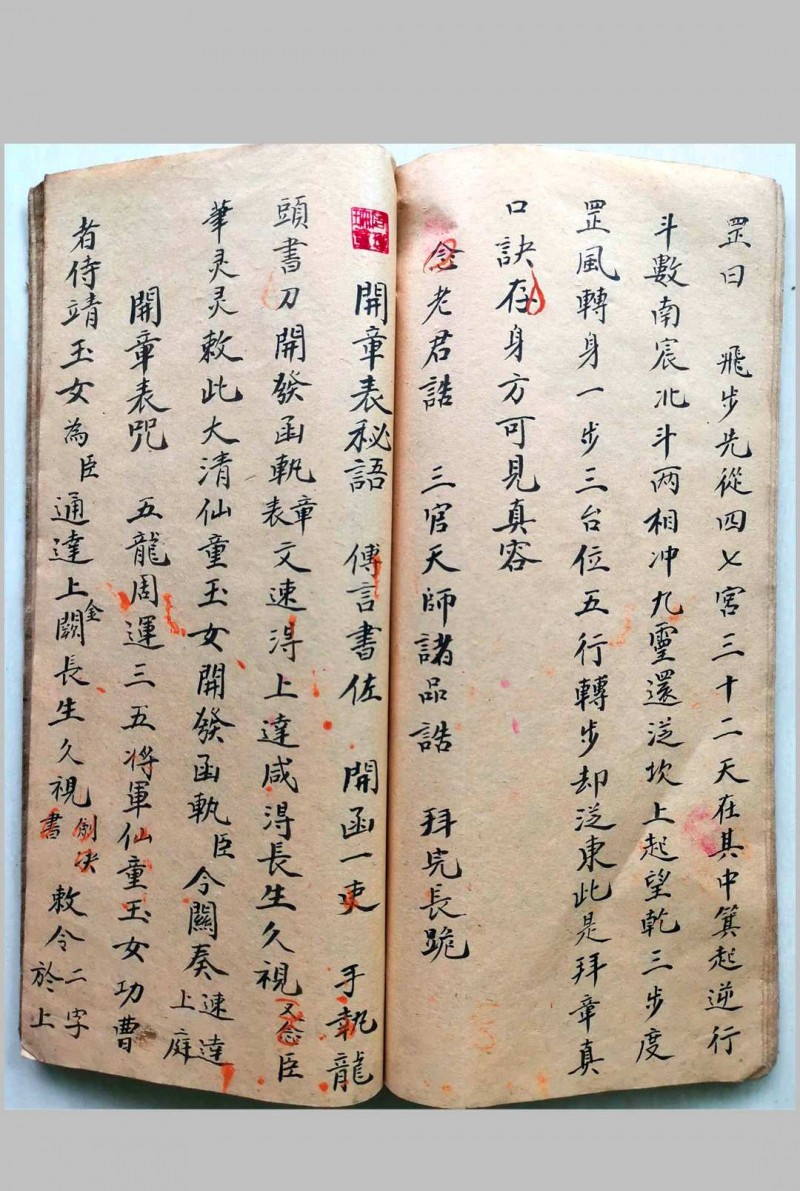 罡曰　飛步先從四七宮三十二天在其中箕起逆行
斗數南宸北斗两相冲九靈還泛坎上起望乾三步度
罡風轉身一步三台位五行轉步却泛東此是拜章真
口訣存身方可見真容
念老君誥　三官天師諸品誥　拜完長跪
開章表秘語　傳言書佐　開函一吏　手執龍
頭書刀開發函執章表文速淂上達咸淂長生久視又念臣
筆灵灵敕此大清仙童玉女開發函執臣今關奏速達上庭
開章表咒　五龍周運三五将軍仙童玉女功曹
者侍靖玉女為臣通達上金闕長生久視劍决書敕令二字於上